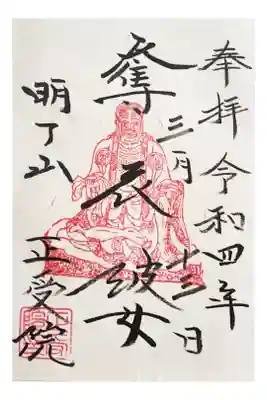 奉拝 令和四年
三月十三日
奪衣婆
明了山
正受院